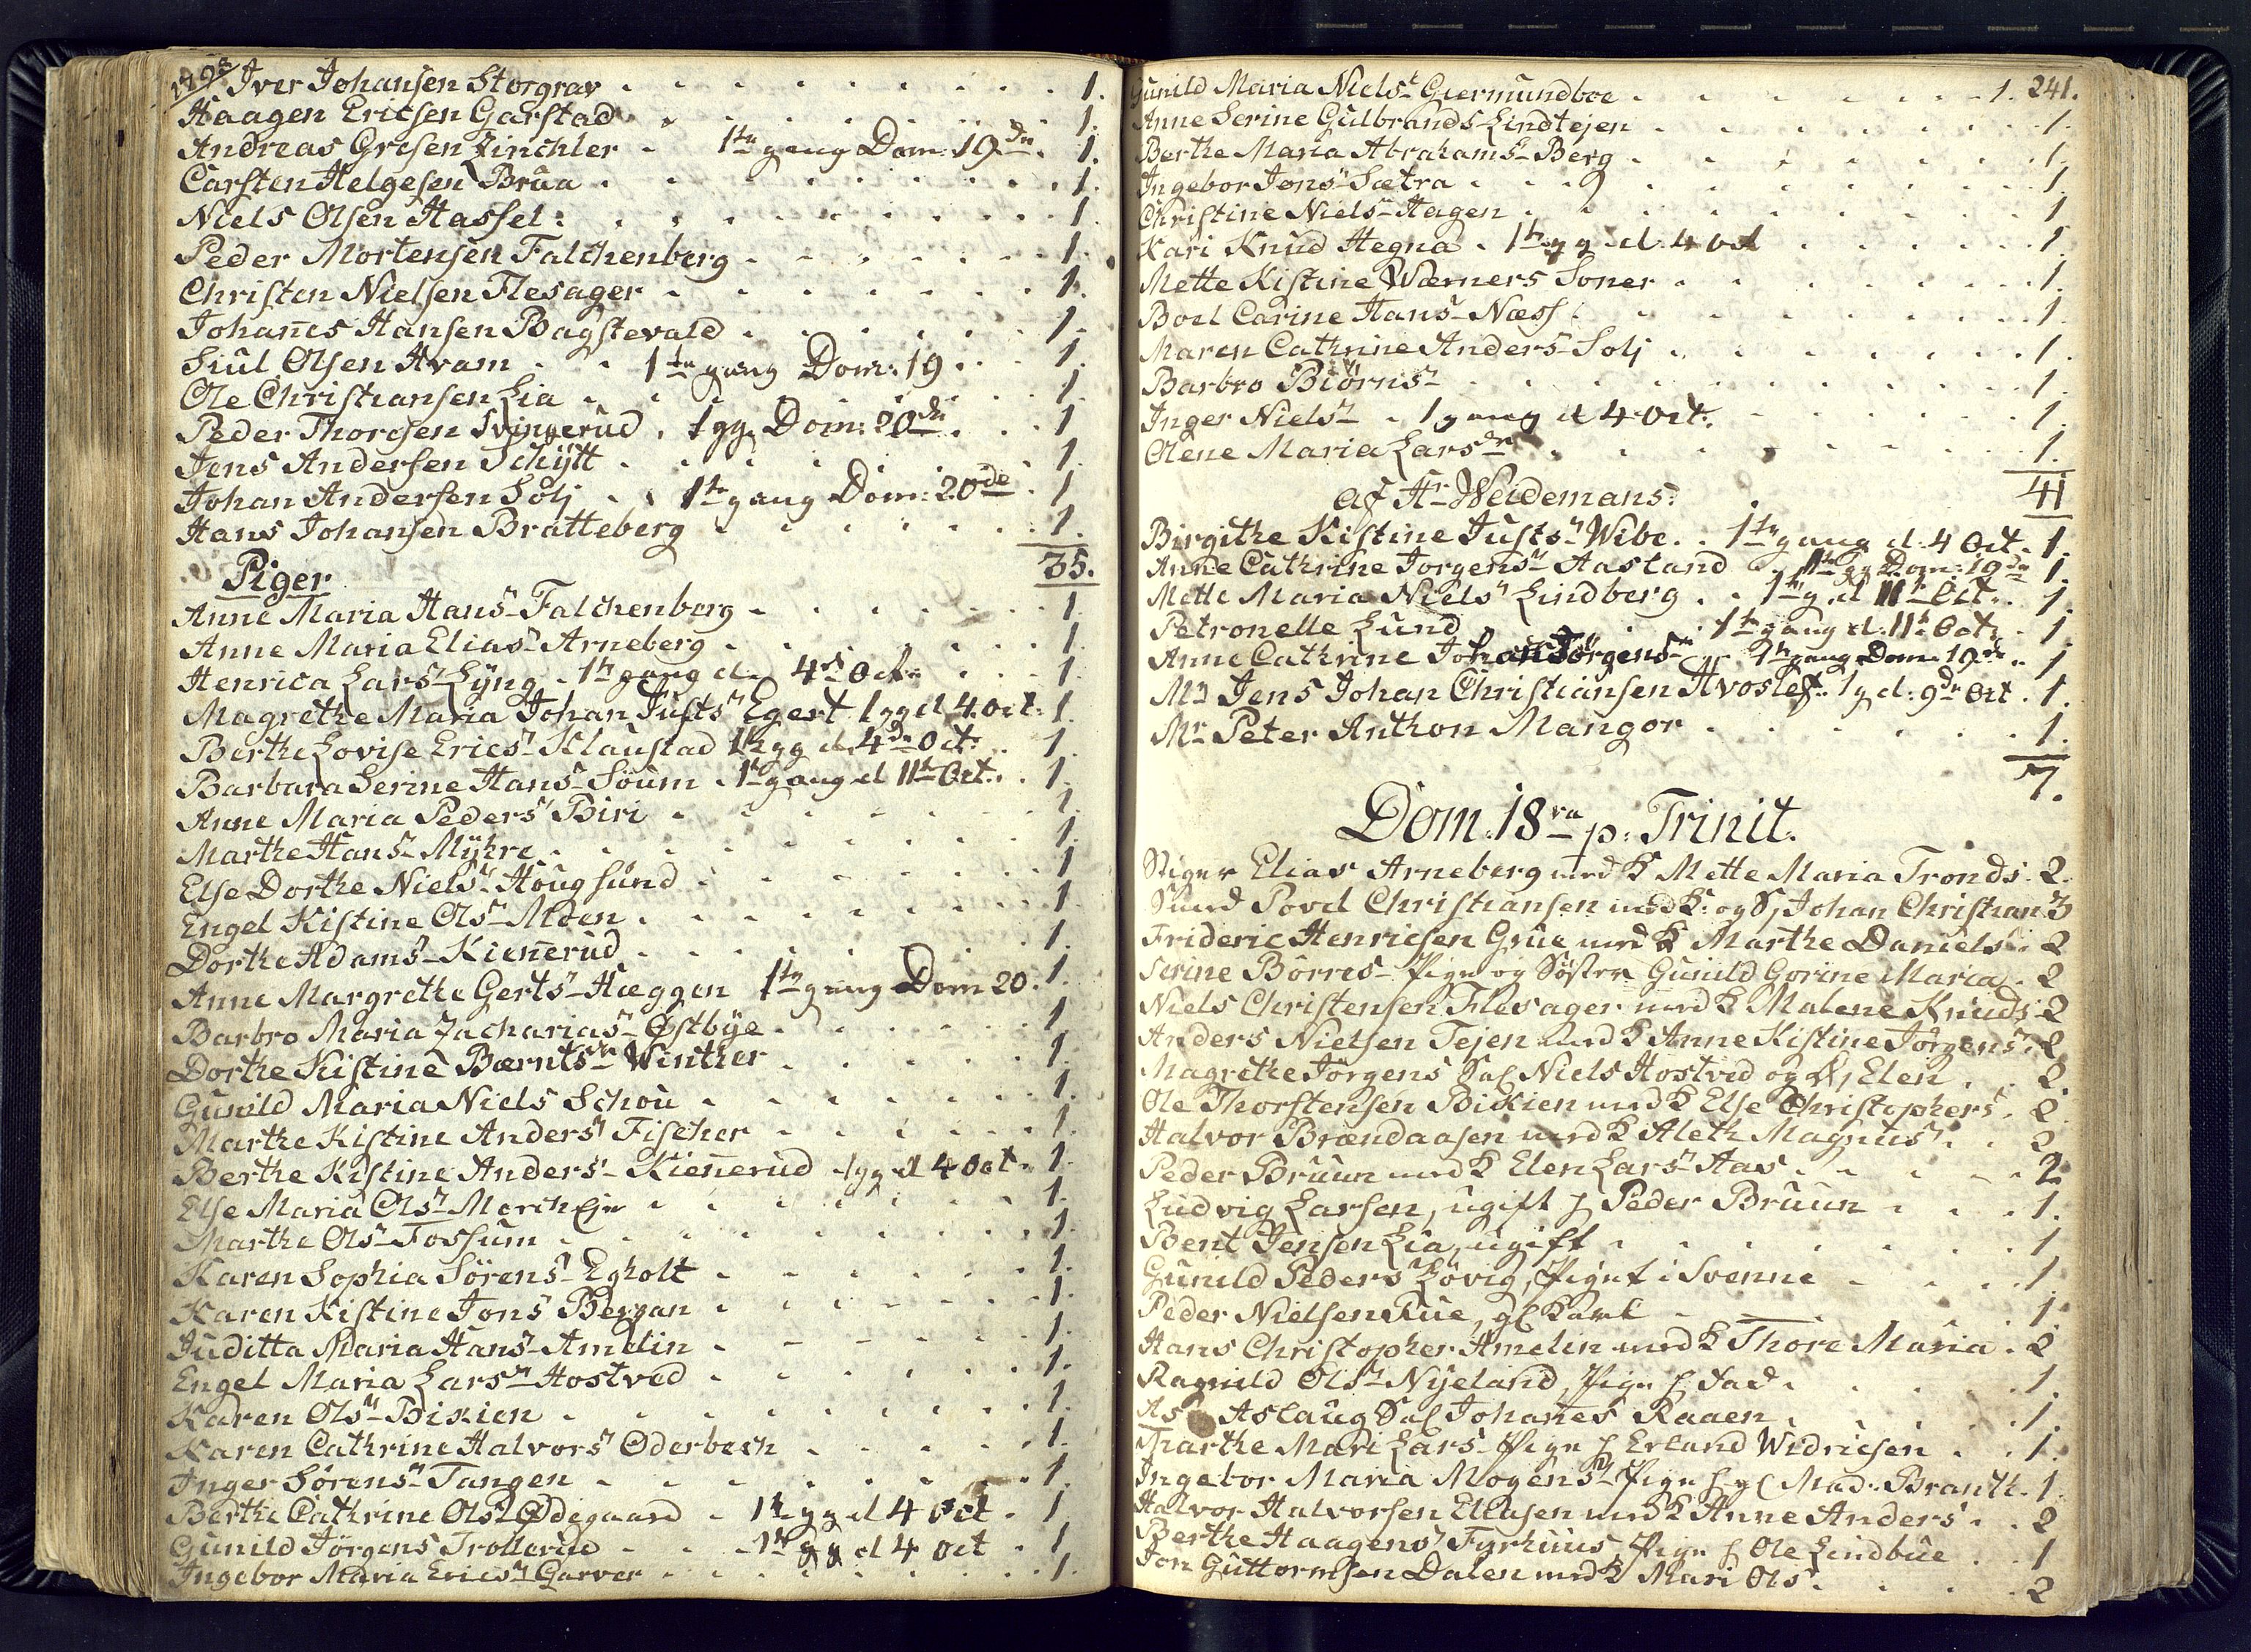 1793 Iver Johansen Storgrav . . . 1.
Haagen Ericsen Garstad . . . 1.
Andreas Grosen Zinchler . 1te gang Dom: 19de . 1.
Carsten Helgesen Brua . . . 1.
Niels Olsen Hassel . . . 1
Peder Mortensen Falchenberg . . . 1.
Christen Nielsen Flesager . . . 1.
Johanes Hansen Bagstevald . . . 1.
Siul Olsen Hvam . . 1te gang Dom: 19 . . 1.
Ole Christiansen Lia . . . 1
Peder Thoresen Svingerud . 1 gg. Dom: 20de . . 1
Jens Andersen Schÿtt . . . 1.
Johan Andersen Solj . . 1te gang Dom: 20de . 1
Hans Johansen Bratteberg . . . 1.
35.
Piger
Anne Maria Hans- Falchenberg . . . 1.
Anne Maria Elias- Arneberg . . . 1.
Henrica Lars- Lÿng . 1te gang d. 4de Oct. . . 1
Magrethe Maria Johan Justs Egert 1 gg d 4. Oct. 1.
Berthe Lovise Erics- Klaustad 1te gg d. 4de Oct: . 1.
Barbara Serine Hans- Soum . 1te gang d 11te Oct. . 1.
Anne Maria Peders- Biri . . . 1.
Marthe Hans- Mÿhre . . . 1.
Else Dorthe Niels- Hougsund . . . 1
Engel Kistine Ols- Moen . . . 1.
Dorthe Adams- Kiennerud . . . 1.
Anne Margrethe Gerts- Hæggen 1te gang Dom 20 . 1.
Barbro Maria Zacharias- Østbÿe . . . 1
Dorthe Kistine Bærnts- Winther . . . 1.
Gunild Maria Niels Schou . . . 1.
Marthe Kistine Anders- Fischer . . . 1.
Berthe Kistine Anders- Kiennerud . 1 gg d 4 Oct. 1.
Else Maria Ols- March Eje . . . 1.
Marthe Ols- Fossum . . . 1.
Karen Sophia Sörens- Egholt . . . 1.
Karen Kistine Jons Bergan . . . 1.
Juditta Maria Hans- Amelin . . . 1.
Engel Maria Lars- Hostved . . . 1.
Karen Ols- Bikien . . . 1.
Karen Cathrine Halvors Oderbech . . . 1.
Inger Sörens- Tangen . . . 1.
Berthe Cathrine Ols- Ødegaard . 1te gg d 4 Oct . 1
Gunild Jörgens Trollerud . . 1te gg d 4 Oct . 1
Ingebor Maria Erics- Garver . . . 1.
Gunild Maria Niels- Giermundboe . . . 1. 241.
Anne Serine Gulbrands- Lindtejen . . . 1.
Berthe Maria Abrahams- Berg . . . 1.
Ingebor Jens- Sætra . . . 1.
Christine Niels- Hagen . . . 1
Kari Knud Hegna . 1te gg d. 4 Oct . . . 1
Mette Kistine Wærners Soner . . . 1.
Boel Carine Hans- Næss . . . 1.
Maren Cathrine Anders- Solj . . . 1.
Barbro Biörns- . . . 1
Inger Niels- . 1 gang d 4 Oct. . . . 1.
Olene Maria Lars- . . . 1.
41
af Hr Weidemans:
Birgithe Kistine Justs- Wibe . . 1te gang d. 4 Oct. 1.
Anne Cathrine Jorgens- Aasland 1te gg Dom: 19de 1.
Mette Maria Niels- Lindberg . . 1te g. d 11te Oct. . 1.
Petronelle Lund . . . 1te gang d. 11te Oct. . 1.
Anne Cathrine Johan Jörgens- . 1te gang Dom. 19de . 1
Mr Jens Johan Christiansen Hvoslef . 1 g d. 9de Oct . 1.
Mr Peter Anthon Mangor . . . 1.
7.
Dom. 18va p: Trinit.
Stiger Elias Arneberg med K Mette Maria Tronds . 2.
Smed Povel Christiansen med K. og S, Johan Christian 3
Frideric Henricsen Grue med K Marthe Daniels . 2
Serine Börres- Pige og Söster Gunild Gorine Maria . 2
Niels Christensen Flesager med K Malene Knuds . 2
Anders Nielsen Tejen med K Anne Kistine Jörgens . 2.
Magrethe Jörgens Sal Niels Hostved og D, Elen . . 2.
Ole Thorstensen Bickien med K Else Christophers . 2
Halvor Brændaasen med K Aleth Magnus . . 2
Peder Bruun med K Elen Lars- Aas . . . 2
Ludvig Larsen, ugift h Peder Bruun . . . 1.
Bent Jensen Lia, ugift . . . 1
Gunild Peders Lövig, Piget i Svenne . . . 1.
Peder Nielsen Rue, gl Karl . . . 1.
Hans Christopher Amelin med K Thore Maria . 2
Ragnild Ols- Nÿeland, Pige h Fad . . . 1.
As Aslaug Sal Johanes Raaen . . . 1.
Marthe Mari Lars- Pige h Erland Widricsen . . 1.
Ingebor Maria Mogens- Pige h gl Mad: Branth . 1.
Halvor Halvorsen Eleasen med K Anne Anders . . 2
Berthe Haagens Fyrhuus Pige h Ole Lindbue . . 1
Jon Guttormsen Dalen med K Mari Ols . . . 2